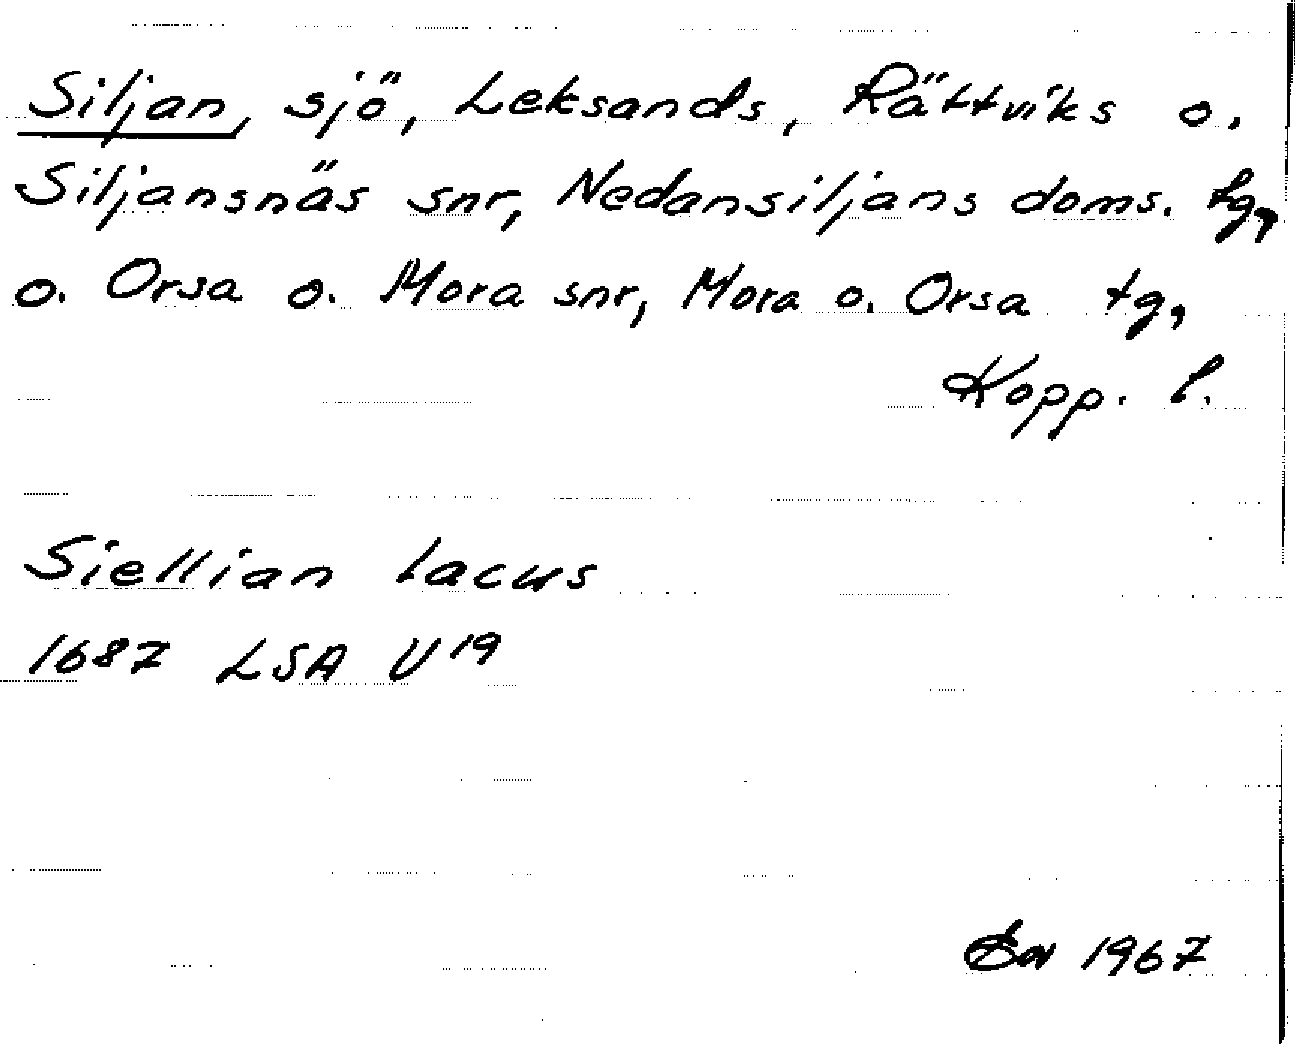 Siljan, sjö, Leksands, Rättviks o.
Siljansnäs snr, Nedansiljans doms. tg,
o. Orsa o. Mora snr, Mora o. Orsa tg,
Kopp. l.
Siellian Lacus
1687 LSA U19
1967